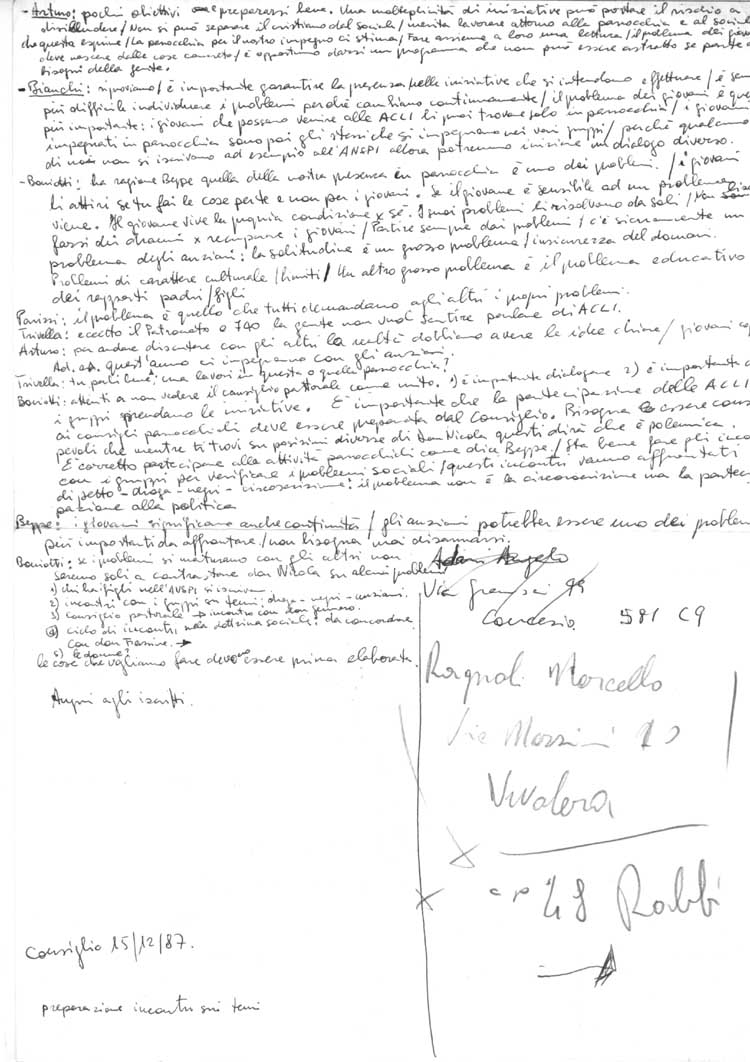 - Arturo: pochi obiettivi e prepararsi bene. Una molteplicità di iniziative può portare il rischio a
disilludere / Non si può separare il cristiano dal sociale / merita lavorare attorno alla parrocchia e al sociale
che questa esprime / La parrocchia per il nostro impegno ci stima / Fare assieme a loro una lettura / il problema dei giovani
deve nascere dalle cose concrete / è opportuno darsi un programma che non può essere astratto se parte dai
bisogni della gente.
- Bianchi: / è importante garantire la presenza nelle iniziative che si intendono effettuare / è sempre
più difficile individuare i problemi perché cambiano continuamente / il problema dei giovani è quello
più importante: i giovani che possano venire alle ACLI li puoi trovare solo in parrocchia / i giovani
impegnati in parrocchia sono poi gli stessi che si impegnano nei vari gruppi / perché qualcuno
di noi non si iscrivono ad esempio all'ANSPI allora potremmo iniziare un dialogo diverso.
- Boniotti: ha ragione Beppe quella della nostra presenza in parrocchia è uno dei problemi. / i giovani
li attiri se tu fai le cose per te e non per i giovani. Se il giovane è sensibile ad un problema
viene. Il giovane vive la propria condizione x sé. I suoi problemi li risolvono da soli / Non
farsi dei drammi x recuperare i giovani / Partire sempre dai problemi / c'è sicuramente un
problema degli anziani: la solitudine è un grosso problema / insicurezza del domani.
Problemi di carattere culturale / limiti / Un altro grosso problema è il problema educativo
dei rapporti padri / figli
Parissi: il problema è quello che tutti demandano agli altri i propri problemi.
Trivella: eccetto il Patronato o 740 la gente non vuol sentire parlare di ACLI.
Arturo: per andare discutere con gli altri la realtà dobbiamo avere le idee chiare / giovani
Ad es. quest'anno ci impegniamo con gli anziani.
Trivella: Tu parli bene, ma lavori in questa o quella parrocchia?
Boniotti: attenti a non vedere il consiglio pastorale come mito. 1) è importante dialogare 2) è importante che
i gruppi prendano le iniziative. È importante che la partecipazione delle ACLI
ai consigli parrocchiali deve essere preparata dal Consiglio. Bisogna essere consa
pevoli che mentre ti trovi su posizioni diverse di Don Nicola questi dirà che è polemica.
È corretto partecipare alle attività parrocchiali come dice Beppe / Sta bene fare gli incontri
con i gruppi per verificare i problemi sociali / questi incontri vanno affrontati
di petto - droga - negri - circoscrizione: il problema non è la circoscrizione ma la parteci
pazione alla politica
Beppe: i giovani significano anche continuità / gli anziani potrebber essere uno dei problemi
più importanti da affrontare / non bisogna mai disarmarsi.
Boniotti: se i problemi si maturano con gli altri non
saremo soli a contrastare don Nicola su alcuni problemi
1) chi ha figli nell'ANSPI si iscriva
2) incontri con i gruppi su temi: droga - negri - anziani.
3) consiglio pastorale → incontro con don Gennaro.
4) ciclo di incontri sulla dottrina sociale: da concordare
con don →
5) le donne?
le cose che vogliamo fare devono essere prima elaborate.
Auguri agli iscritti.
Adami Angelo
Via Gramsci 99
Concesio 581 C9
Ragnoli Marcello
Via Mazzini 10
Nuvolera
c p 48 Rabbi
→
Consiglio 15/12/87.
preparazione incontri sui temi